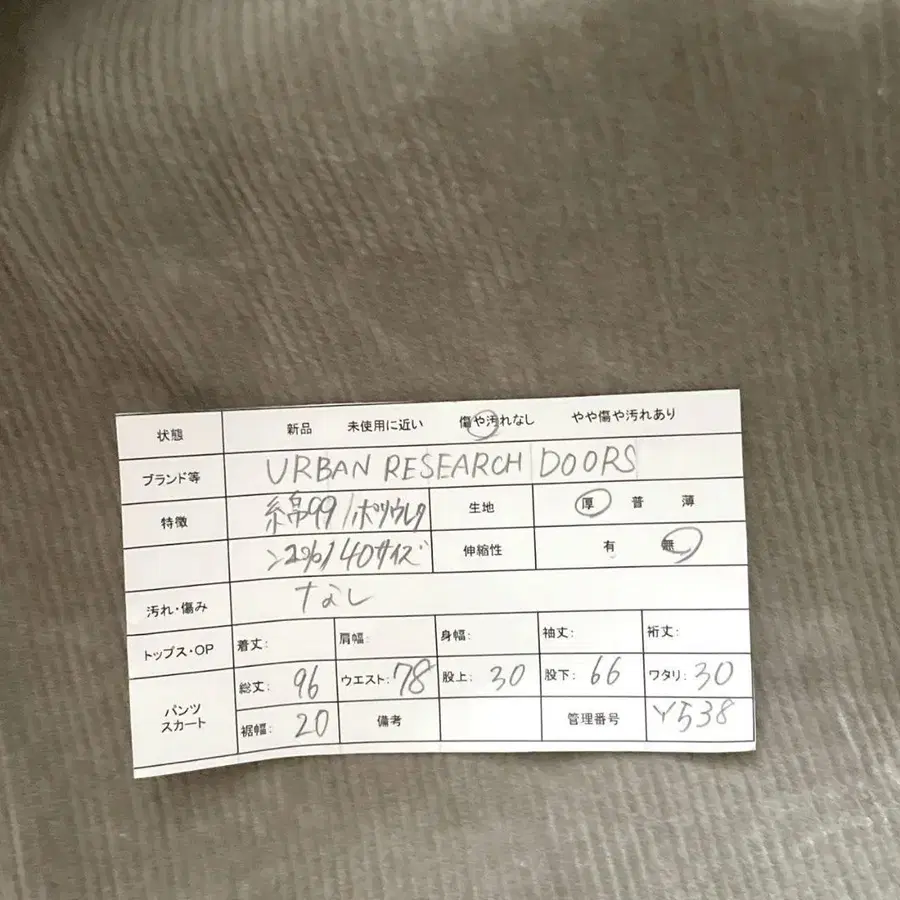 状態 新品 未使用に近い 傷や汚れなし やや傷や汚れあり
ブランド等 URBAN RESEARCH DOORS
特徴 綿99/ポリウレタ 生地 厚 普 薄
ン2%/40サイズ 伸縮性 有 無
汚れ・傷み なし
トップス・OP 着丈: 肩幅: 身幅: 袖丈: 裄丈:
パンツ スカート 総丈: 96 ウエスト: 78 股上: 30 股下: 66 ワタリ: 30
裾幅: 20 備考 管理番号 Y538